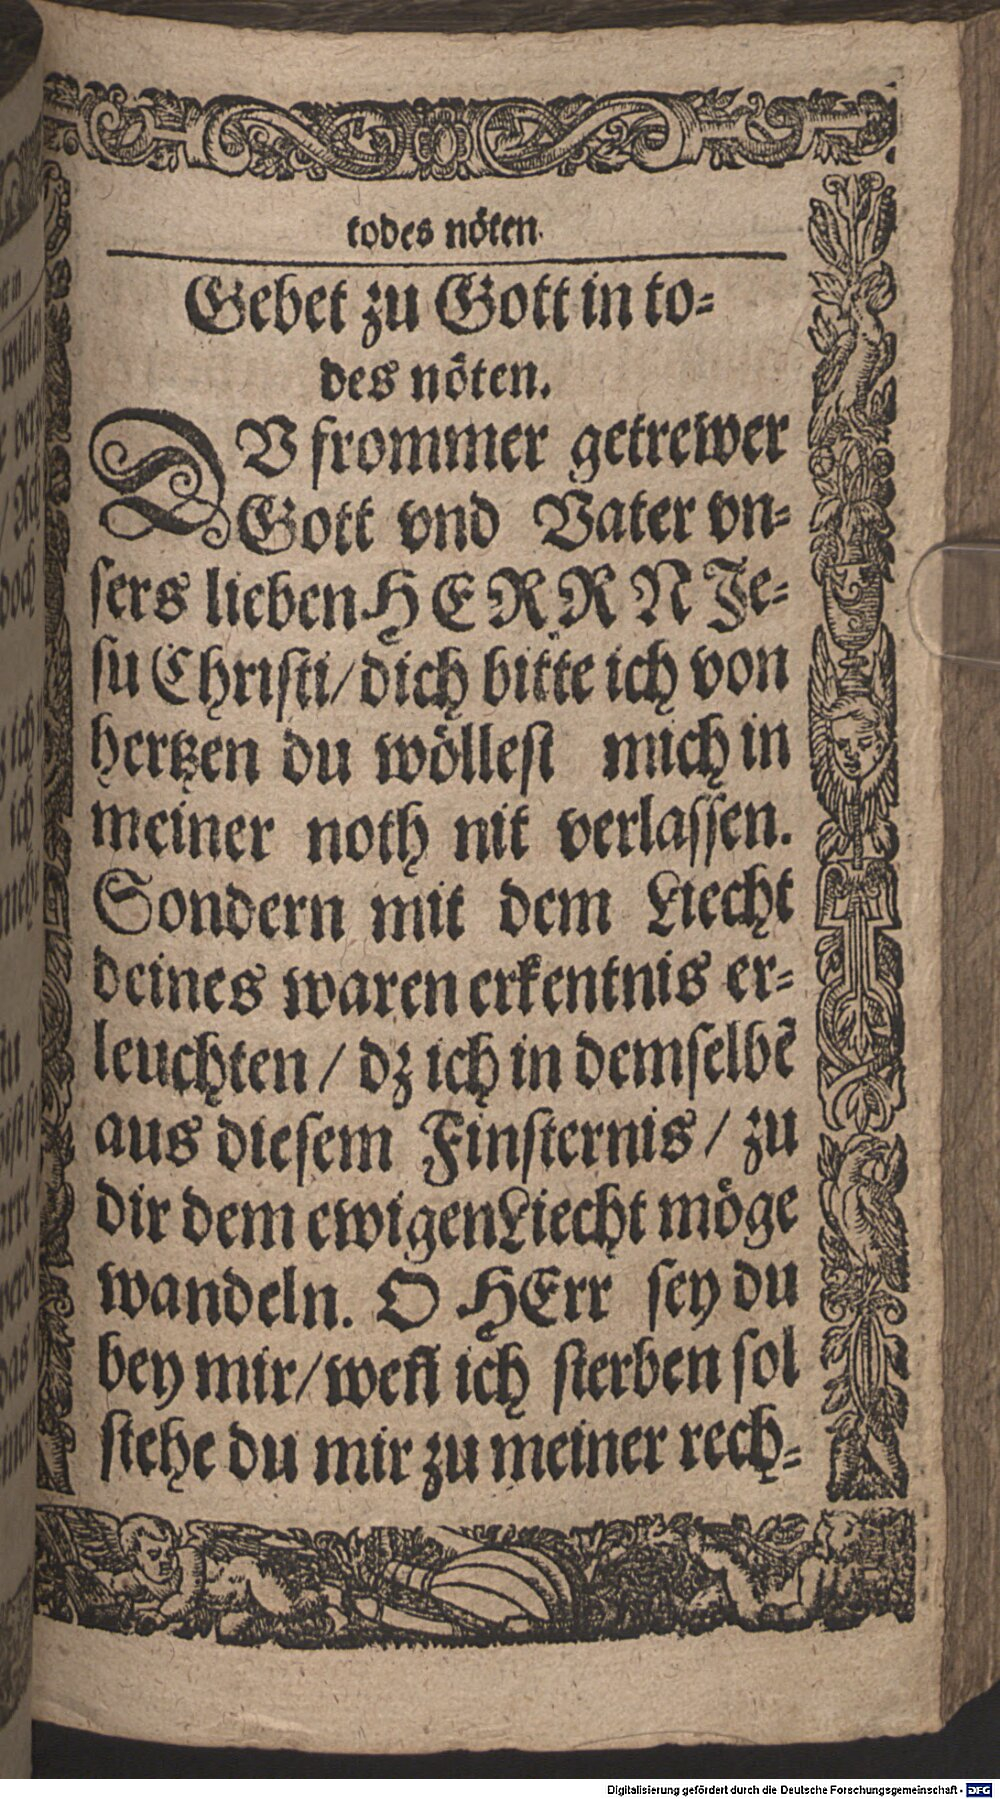 todes nöten.
Gebet zu Gott in to-
des nöten.
DV frommer getrewer
Gott vnd Vater vn-
sers lieben HERRN Je-
su Christi/ dich bitte ich von
hertzen du wöllest mich in
meiner noth nit verlassen.
Sondern mit dem Liecht
deines waren erkentnis er-
leuchten / dz ich in demselbē
aus diesem Finsternis / zu
dir dem ewigen Liecht möge
wandeln. O HErr sey du
bey mir/ weñ ich sterben sol
stehe du mir zu meiner rech-
Digitalisierung gefördert durch die Deutsche Forschungsgemeinschaft - DFG